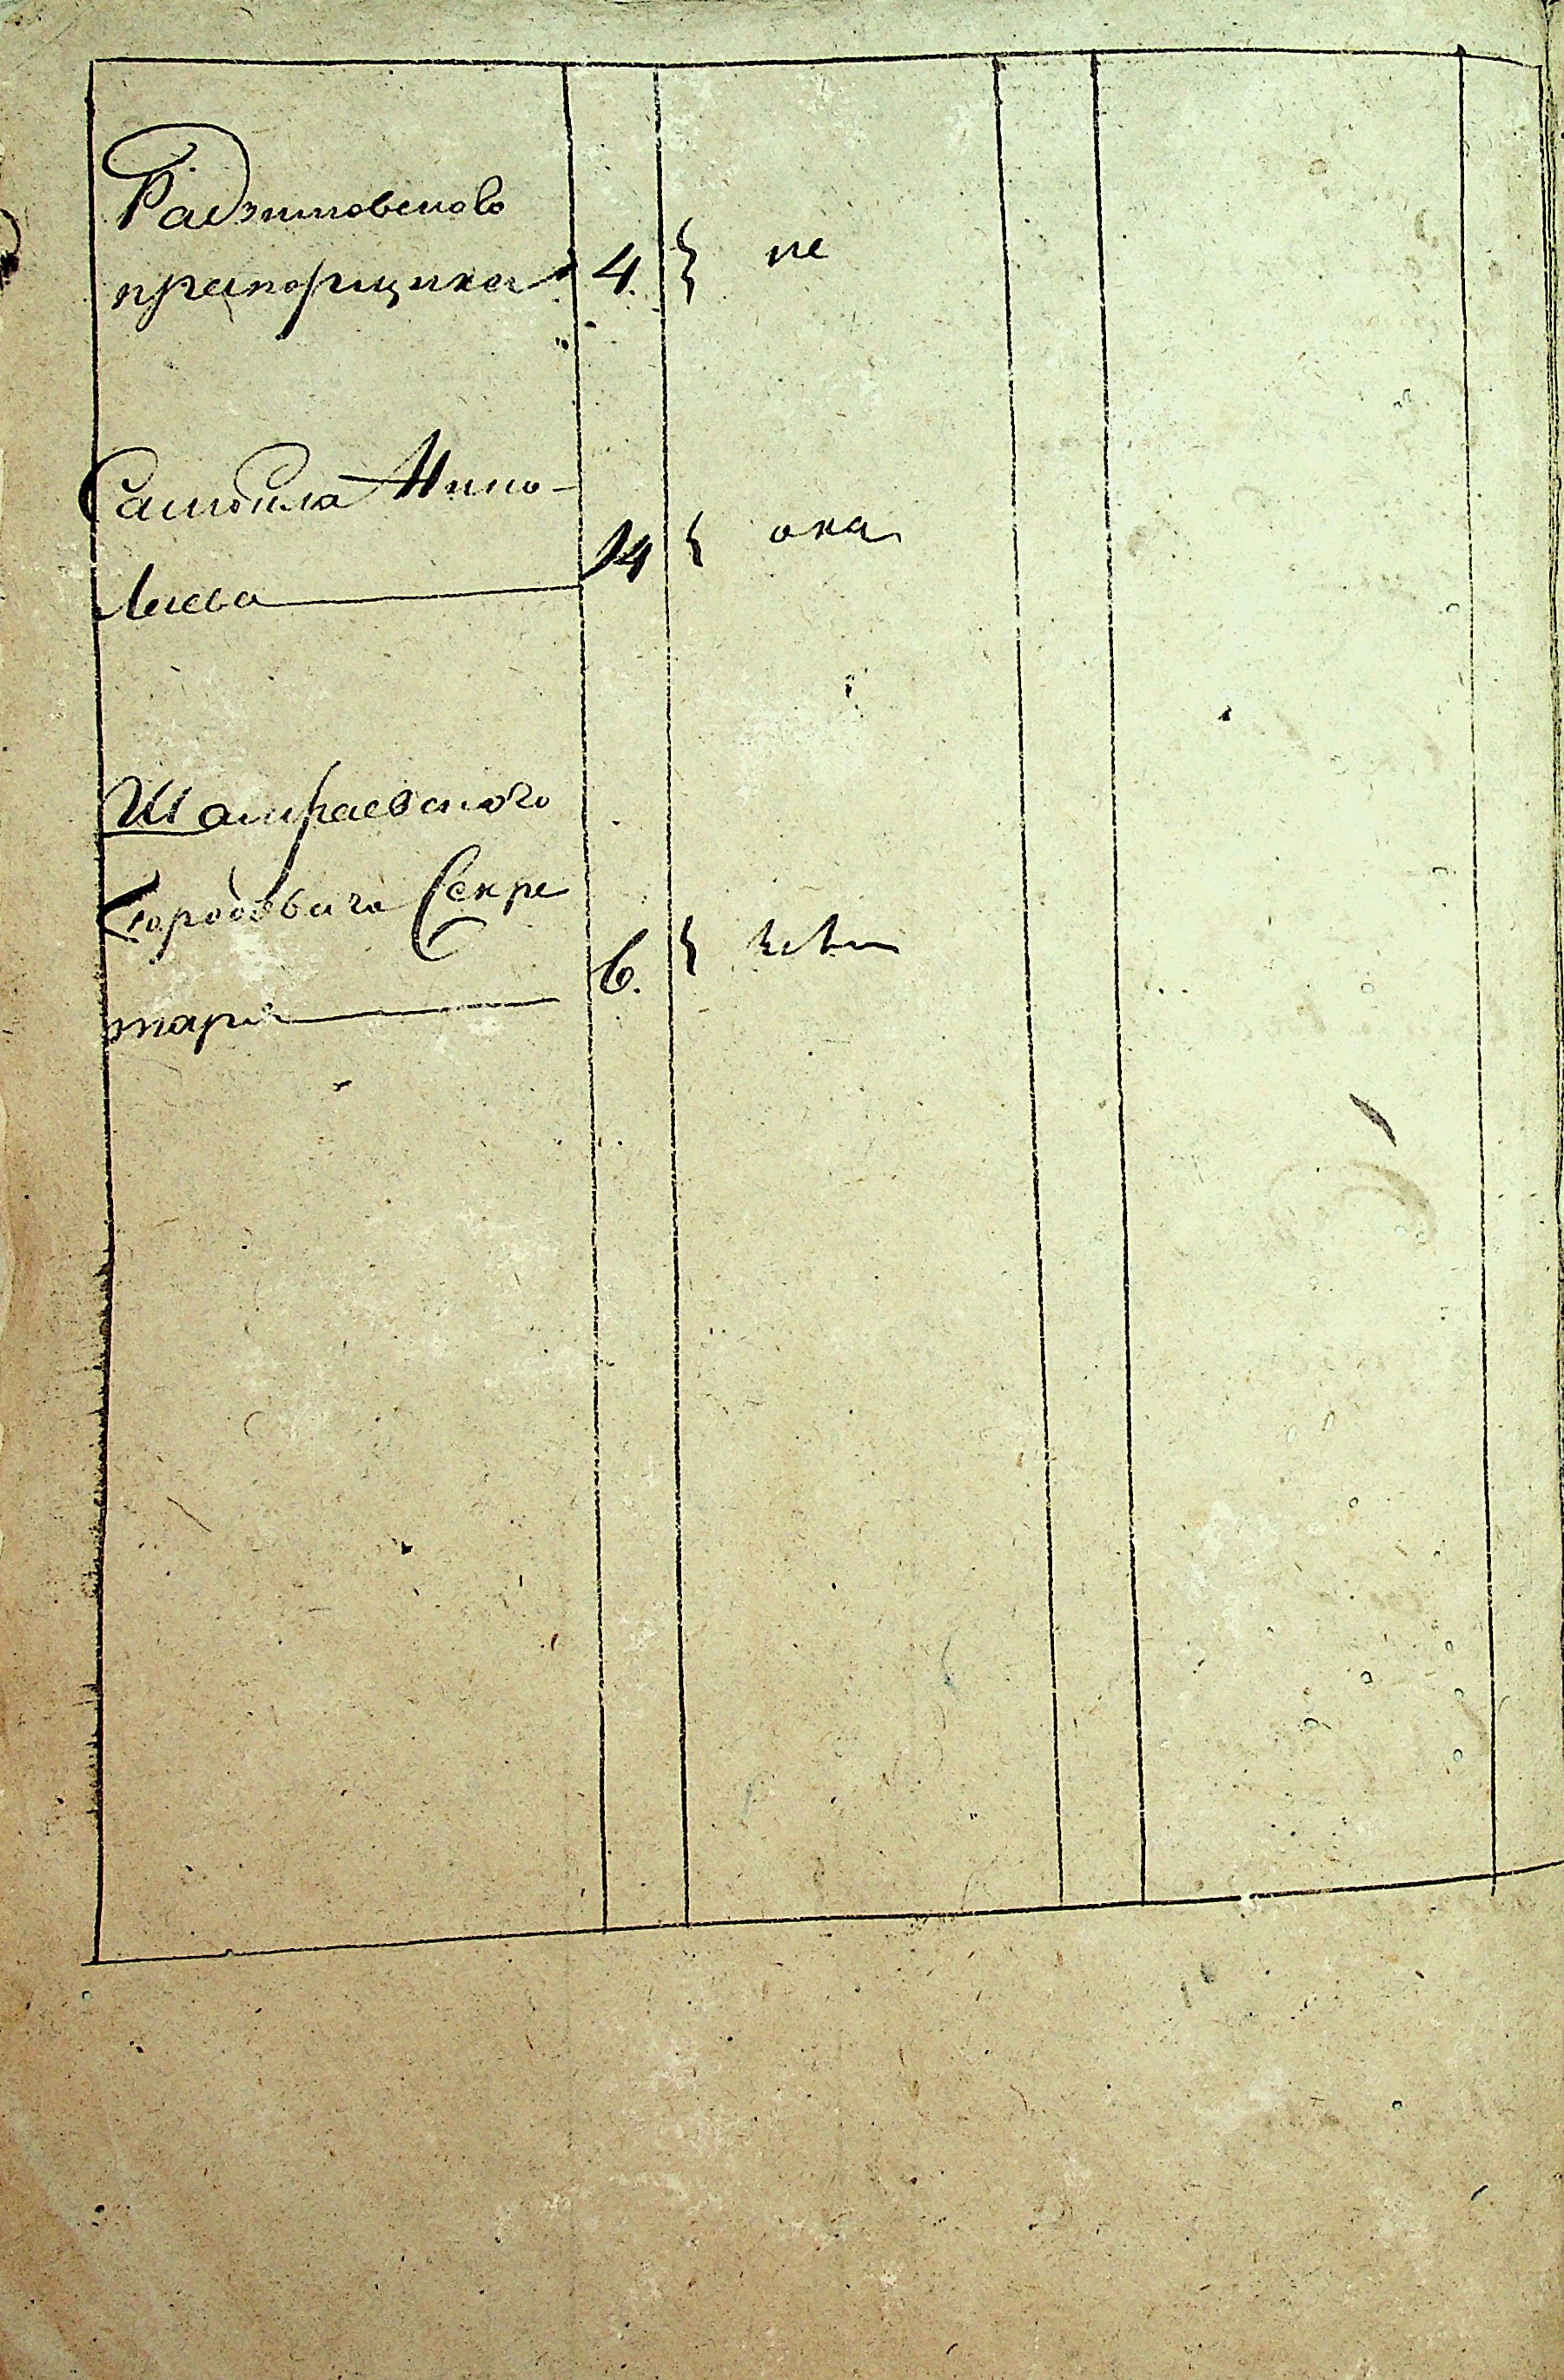 Радзимовского
прапорщика 4. } не
Самойла Нико-
лаева 14 } ока
Шамраевского
Городового Секре
таря 6.